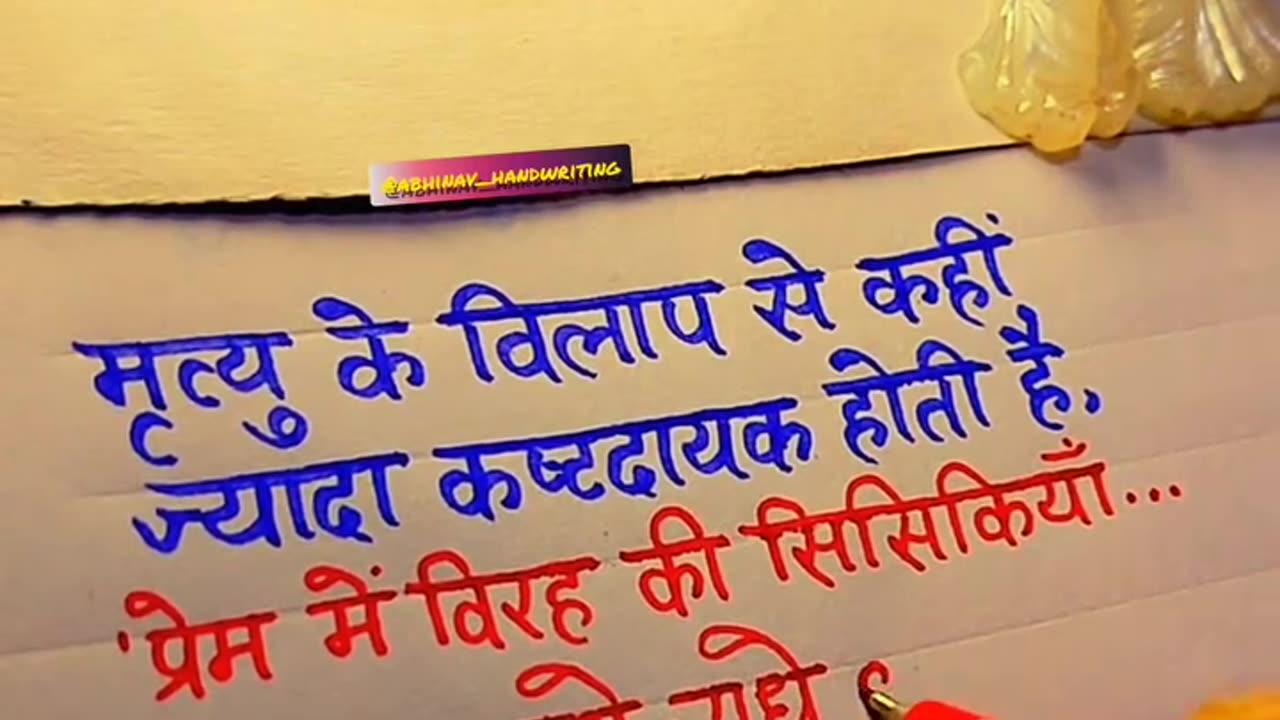 @ABHINAV_HANDWRITING
मृत्यु के विलाप से कहीं
ज्यादा कष्टदायक होती है.
'प्रेम में विरह की सिसकियाँ...
राधे